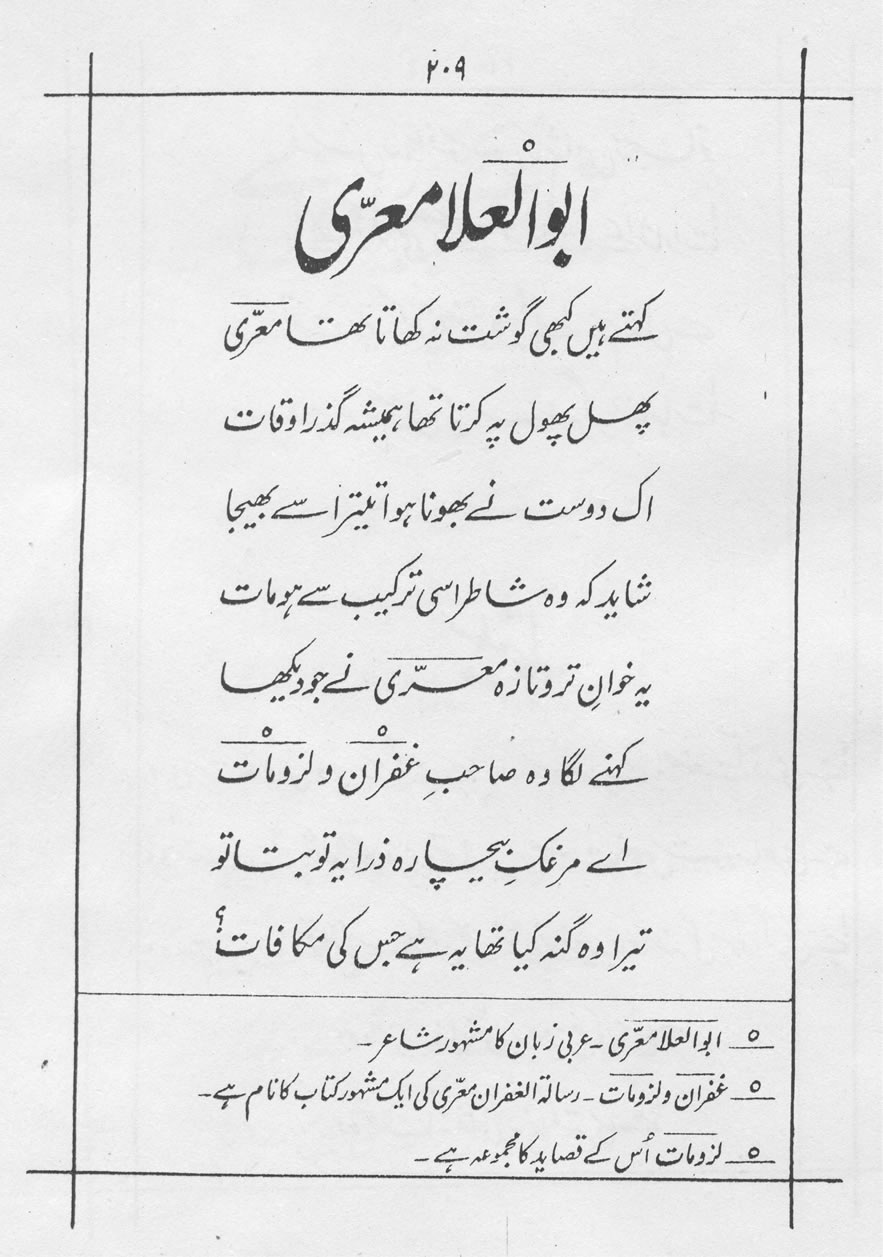 ۲۰۹
ابوالعلا معرّی
کہتے ہیں کبھی گوشت نہ کھاتا تھا معرّی
پھل پھول پہ کرتا تھا ہمیشہ گذر اوقات
اک دوست نے بھونا ہوا تیتر اسے بھیجا
شاید کہ وہ شاطر اسی ترکیب سے ہو مات
یہ خوانِ تر و تازہ معرّی نے جو دیکھا
کہنے لگا وہ صاحبِ غفران و لزومات
اے مرغکِ بیچارہ ذرا یہ تو بتا تو
تیرا وہ گنہ کیا تھا یہ ہے جس کی مکافات؟
ہ ابوالعلا معرّی ۔ عربی زبان کا مشہور شاعر ۔
ہ غفران و لزومات ۔ رسالۃ الغفران معرّی کی ایک مشہور کتاب کا نام ہے ۔
ہ لزومات اُس کے قصاید کا مجموعہ ہے ۔